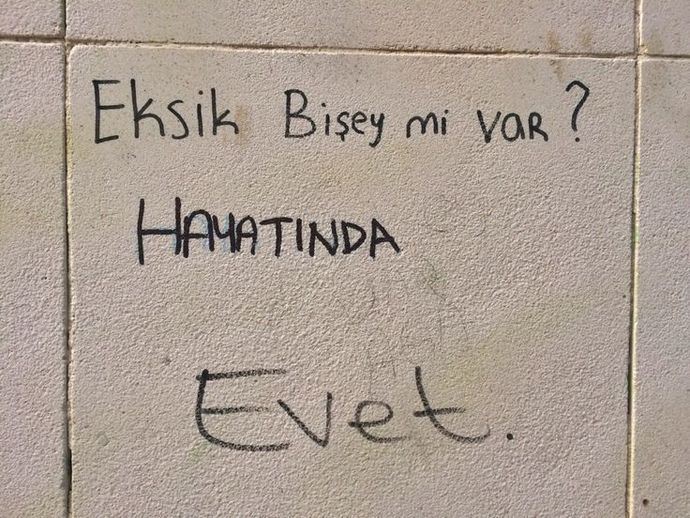 Eksik Bişey mi var?
HAYATINDA
Evet.